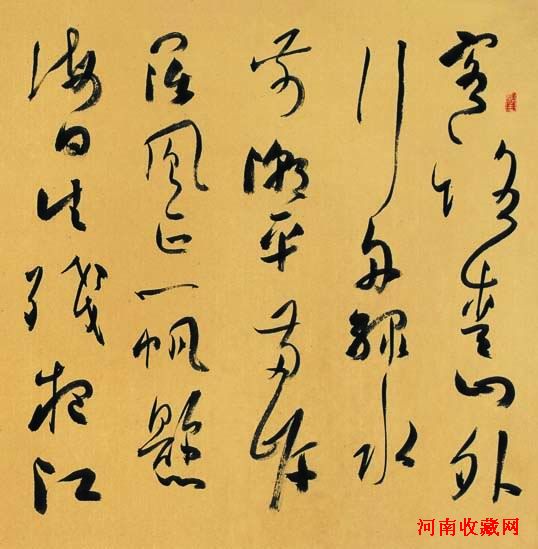 客路青山外
行舟綠水
前潮平兩岸
闊風正一帆懸
海日生殘夜江
河南收藏网